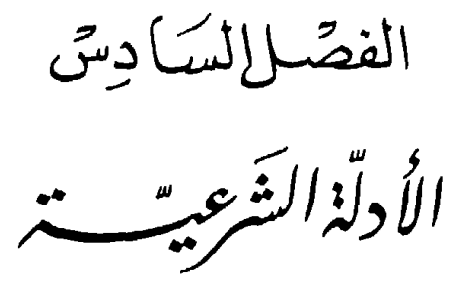 الفصْل السَادِسْ
الأدلّة الشَرعيّة